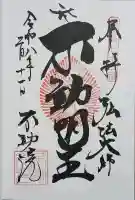 奉拝
弘法大師
不動明王
令和八年
一月十一日
不動院